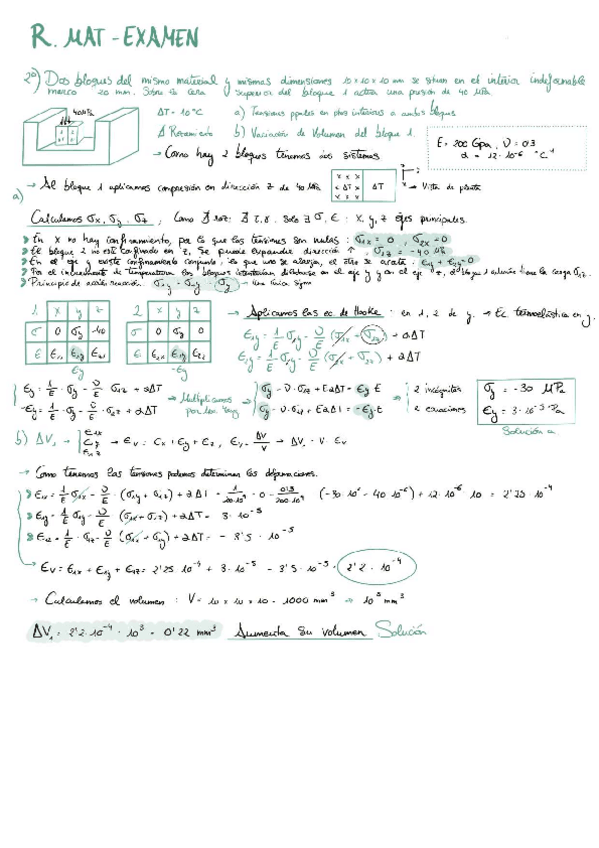 R. MAT - EXAMEN
2º) Dos bloques del mismo material y mismas dimensiones 10 x 10 x 20 mm se sitúan en el interior indeformable
marco 20 mm. Sobre la cara superior del bloque 1 actúa una presión de 40 MPa
40 MPa
1 2
ΔT = 10 ºC
∄ Rozamiento
a) Tensiones ppales en ptos interiores a ambos bloques
b) Variación de volumen del bloque 1.
E = 200 Gpa, ν = 0.3
α = 12·10⁻⁶ ºC⁻¹
→ Como hay 2 bloques tenemos dos sistemas
a) → Al bloque 1 aplicamos compresión en dirección z de 40 MPa
x x x
< ΔT >
x x x
ΔT
→ Vista de planta
Calculamos σx, σy, σz, Como ∄ roz: ∄ τ, γ. Solo ∃ σ, ε : x, y, z ejes principales.
En x no hay confinamiento, por lo que las tensiones son nulas : σ1x = 0, σ2x = 0
El bloque 2 no está confinado en z, se puede expandir dirección ↑
σ1z = -40 MPa
En el eje y existe confinamiento conjunto, lo que uno se alarga, el otro se acorta : ε1y + ε2y = 0
Por el incremento de temperatura los bloques intentarían dilatarse en el eje y y en el eje z, el bloque 1 además tiene la carga σ1z.
Principio de acción reacción: σ1y = σ2y = σy → Una única sigma
1 x y z
σ 0 σy -40
ε ε1x ε1y ε1z
εy
2 x y z
σ 0 σy 0
ε ε2x ε2y ε2z
-εy
→ Aplicamos las ec de Hooke : en 1, 2 de y. → Ec termoelástica en y.
ε1y = 1/E σ1y - ν/E (σ1x + σ1z) + αΔT
ε2y = 1/E σ2y - ν/E (σ2x + σ2z) + αΔT
εy = 1/E · σy - ν/E σ1z + αΔT
-εy = 1/E · σy - ν/E · σ2z + αΔT
→ Multiplicamos por
σy - ν·σ1z + EαΔT = εy E
σy - ν·σ2z + EαΔT = -εy·E
⇒ 2 incógnitas
2 ecuaciones
σy = -30 MPa
εy = 3·10⁻⁵
Solución a
b) ΔV₁ → ε1x ε1y ε1z → εv = εx + εy + εz, εv = ΔV/V → ΔV = V · εv
→ Como tenemos las tensiones podemos determinar las deformaciones.
ε1x = 1/E σ1x - ν/E · (σ1y + σ1z) + αΔT = 1/200·10⁹ · 0 - 0'3/200·10⁹ (-30·10⁶ - 40·10⁶) + 12·10⁻⁶ · 10 = 2'25·10⁻⁴
ε1y = 1/E σ1y - ν/E (σ1x + σ1z) + αΔT = 3·10⁻⁵
ε1z = 1/E · σ1z - ν/E (σ1x + σ1y) + αΔT = -3'5·10⁻⁵
→ εv = ε1x + ε1y + ε1z = 2'25·10⁻⁴ + 3·10⁻⁵ - 3'5·10⁻⁵ = 2'2·10⁻⁴
→ Calculamos el volumen : V = 10 x 10 x 10 = 1000 mm³ ⇒ 10³ mm³
ΔV₁ = 2'2·10⁻⁴ · 10³ = 0'22 mm³ Aumenta su volumen Solución